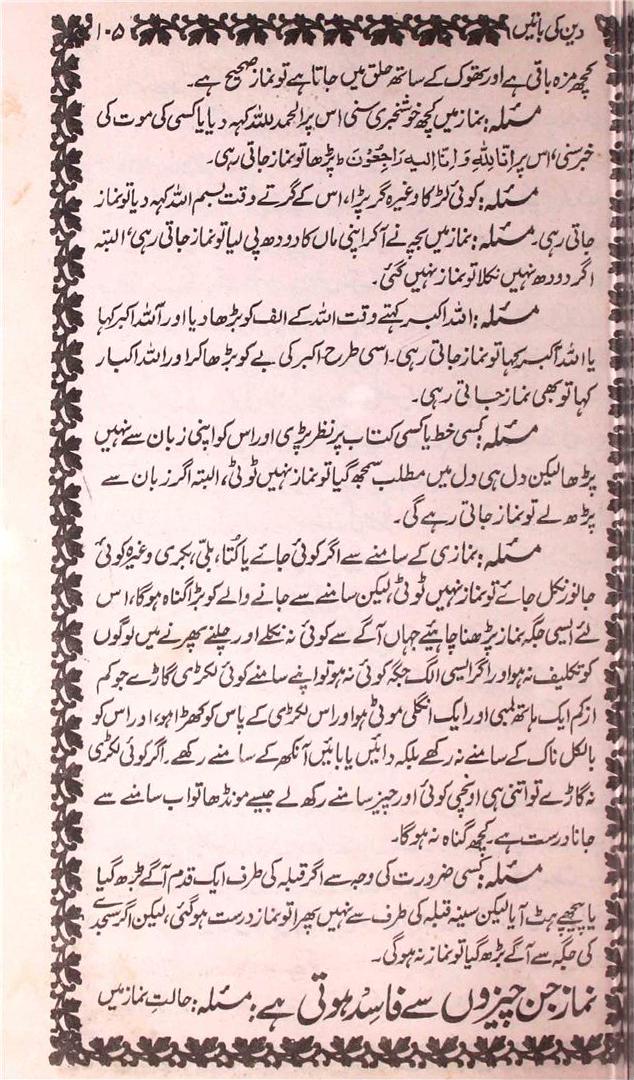 دین کی باتیں ۱۰۵
کچھ مزہ باقی ہے اور تھوک کے ساتھ حلق میں جاتا ہے تو نماز صحیح ہے۔
مسئلہ: نماز میں کچھ خوشخبری سنی اس پر الحمد للہ کہہ دیا یا کسی کی موت کی
خبر سنی، اس پر اِنَّا لِلّٰهِ وَ اِنَّا اِلَیْهِ رَاجِعُوْنَ ط پڑھا تو نماز جاتی رہی۔
مسئلہ: کوئی لڑکا وغیرہ گر پڑا، اس کے گرتے وقت بسم اللہ کہہ دیا تو نماز
جاتی رہی۔ مسئلہ: نماز میں بچہ نے آ کر اپنی ماں کا دودھ پی لیا تو نماز جاتی رہی، البتہ
اگر دودھ نہیں نکلا تو نماز نہیں گئی۔
مسئلہ: اللہ اکبر کہتے وقت اللہ کے الف کو بڑھا دیا اور آللہ اکبر کہا
یا اللہ آکبر کہا تو نماز جاتی رہی۔ اسی طرح اکبر کی بے کو بڑھا کر اور اللہ اکبار
کہا تو بھی نماز جاتی رہی۔
مسئلہ: کسی خط یا کسی کتاب پر نظر پڑی اور اس کو اپنی زبان سے نہیں
پڑھا لیکن دل ہی دل میں مطلب سمجھ گیا تو نماز نہیں ٹوٹی، البتہ اگر زبان سے
پڑھ لے تو نماز جاتی رہے گی۔
مسئلہ: نمازی کے سامنے سے اگر کوئی جائے یا کتا، بلی، بکری وغیرہ کوئی
جانور نکل جائے تو نماز نہیں ٹوٹی، لیکن سامنے سے جانے والے کو بڑا گناہ ہوگا، اس
لئے ایسی جگہ نماز پڑھنا چاہیئے جہاں آگے سے کوئی نہ نکلے اور چلنے پھرنے میں لوگوں
کو تکلیف نہ ہو اور اگر ایسی الگ جگہ کوئی نہ ہو تو اپنے سامنے کوئی لکڑی گاڑے جو کم
از کم ایک ہاتھ لمبی اور ایک انگلی موٹی ہو اور اس لکڑی کے پاس کو کھڑا ہو، اور اس کو
بالکل ناک کے سامنے نہ رکھے بلکہ دائیں یا بائیں آنکھ کے سامنے رکھے۔ اگر کوئی لکڑی
نہ گاڑے تو اتنی ہی اونچی کوئی اور چیز سامنے رکھ لے جیسے مونڈھا تو اب سامنے سے
جانا درست ہے۔ کچھ گناہ نہ ہوگا۔
مسئلہ: کسی ضرورت کی وجہ سے اگر قبلہ کی طرف ایک قدم آگے بڑھ گیا
یا پیچھے ہٹ آیا لیکن سینہ قبلہ کی طرف سے نہیں پھرا تو نماز درست ہوگئی، لیکن اگر سجدے
کی جگہ سے آگے بڑھ گیا تو نماز نہ ہوگی۔
نماز جن چیزوں سے فاسد ہوتی ہے: مسئلہ: حالتِ نماز میں